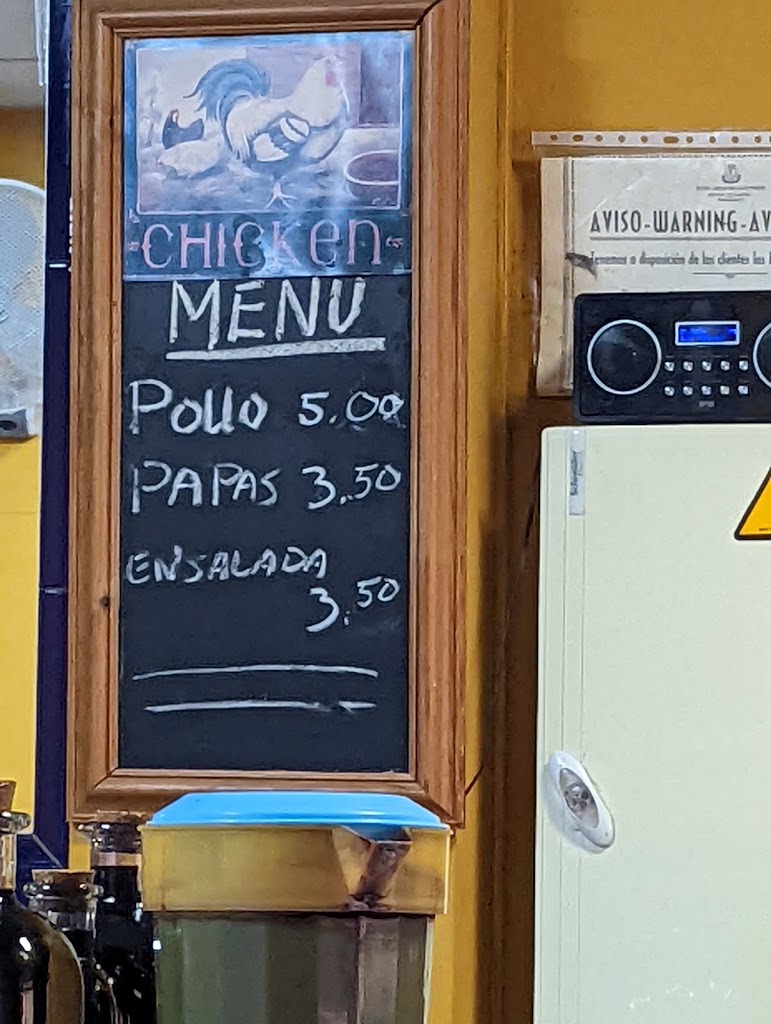 CHICKen
MENU
Pollo 5.00
PAPAS 3.50
ENSALADA
3.50
AVISO-WARNING-AV
Tenemos a disposición de los clientes las